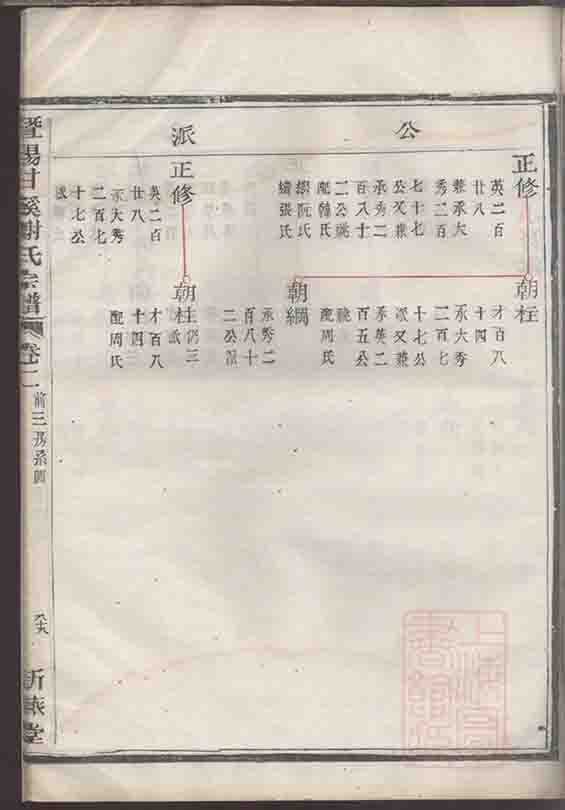 公派
正修
英二百
廿八
兼承大
秀二百
七十七
公又兼
承秀二
百八十
二公祧
配韓氏
繼阮氏
繼張氏
朝柱
才百八
十四
承大秀
二百七
十七公
派又兼
承英二
百五公
祧
配周氏
朝綱
承秀二
百八十
二公派
正修
英二百
廿八
承大秀
二百七
十七公
派
朝柱
才百八
十四
配周氏
暨陽甘溪謝氏宗譜
卷二
前三房系圖
新蔴堂
上海圖書館藏